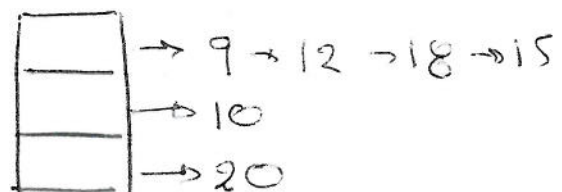 → 9 → 12 → 18 → 15
→ 10
→ 20